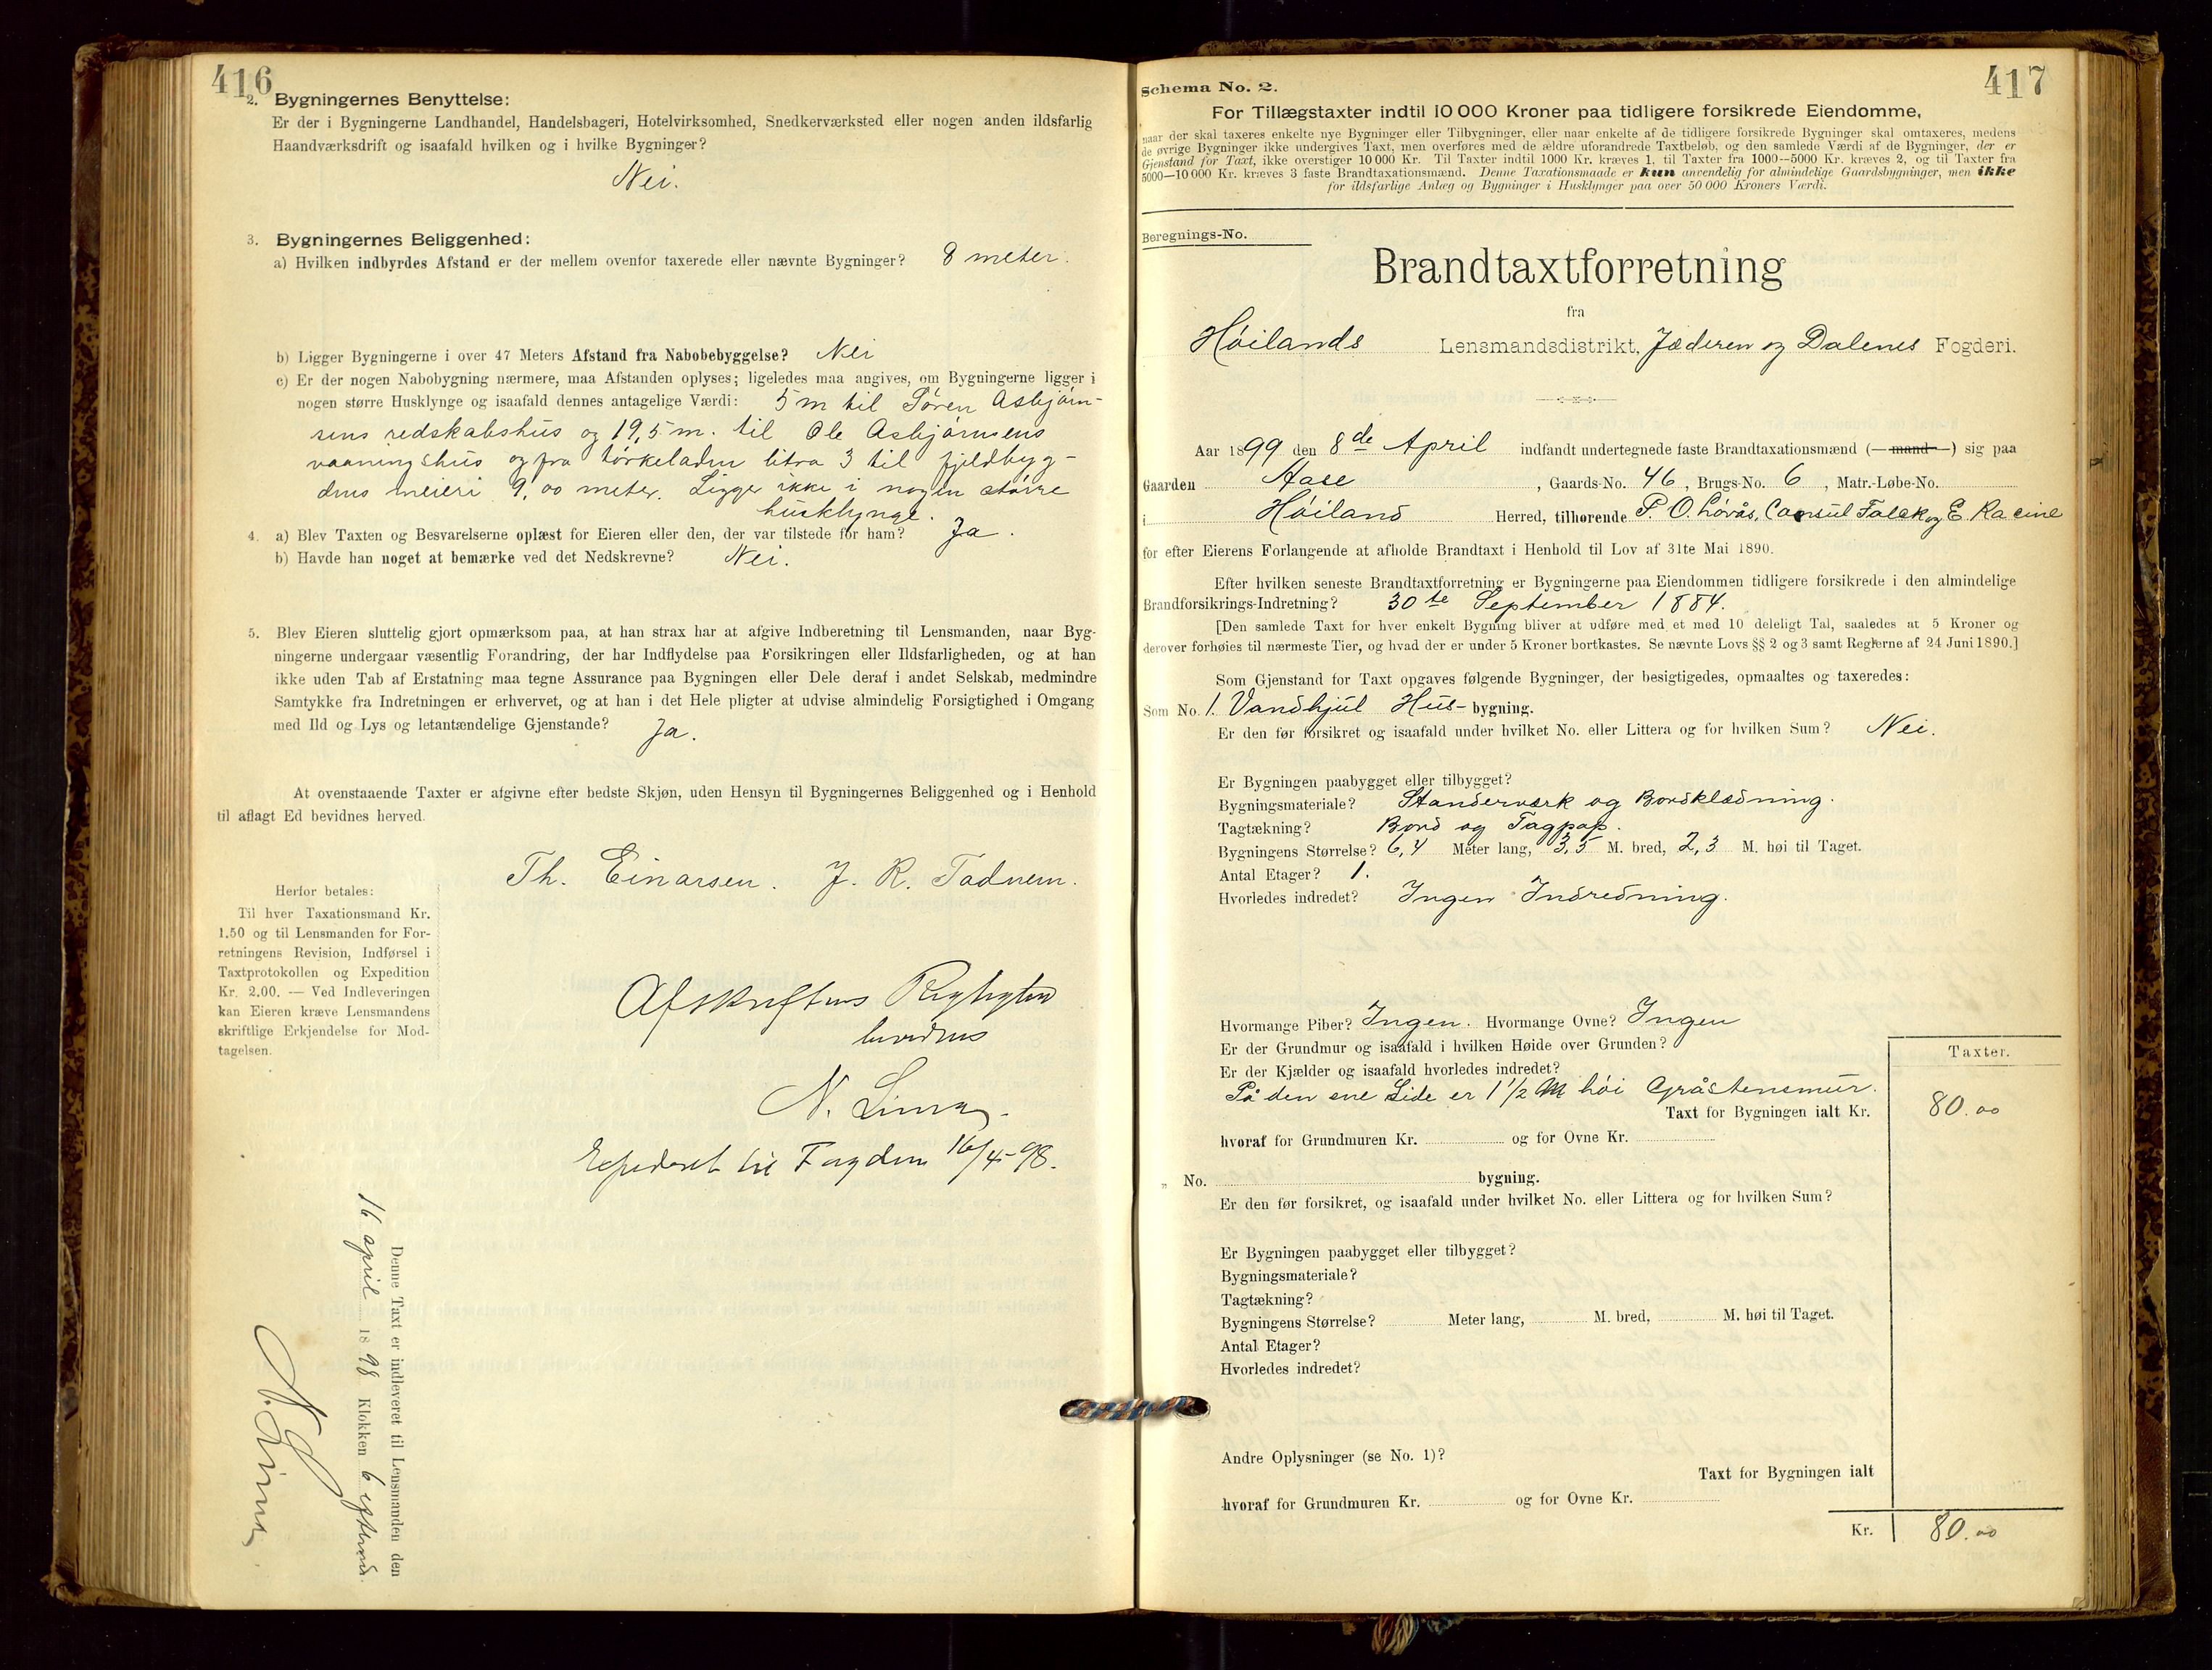 416
2. Bygningernes Benyttelse:
Er der i Bygningerne Landhandel, Handelsbageri, Hotelvirksomhed, Snedkerværksted eller nogen anden ildsfarlig
Haandværksdrift og isaafald hvilken og i hvilke Bygninger?
Nei.
3. Bygningernes Beliggenhed:
a) Hvilken indbyrdes Afstand er der mellem ovenfor taxerede eller nævnte Bygninger? 8 meter.
b) Ligger Bygningerne i over 47 Meters Afstand fra Nabobebyggelse? Nei
c) Er der nogen Nabobygning nærmere, maa Afstanden oplyses; ligeledes maa angives, om Bygningerne ligger i
nogen større Husklynge og isaafald dennes antagelige Værdi: 5 m til Sören Asbjörn-
sens redskabshus og 19,5 m. til Ole Asbjörnsens
vaaningshus og fra törkeladen litra 3 til fjeldbyg-
dens meieri 9,00 meter. Ligger ikke i nogen större
husklynge.
4. a) Blev Taxten og Besvarelserne oplæst for Eieren eller den, der var tilstede for ham? Ja.
b) Havde han noget at bemærke ved det Nedskrevne? Nei.
5. Blev Eieren sluttelig gjort opmærksom paa, at han strax har at afgive Indberetning til Lensmanden, naar Byg-
ningerne undergaar væsentlig Forandring, der har Indflydelse paa Forsikringen eller Ildsfarligheden, og at han
ikke uden Tab af Erstatning maa tegne Assurance paa Bygningen eller Dele deraf i andet Selskab, medmindre
Samtykke fra Indretningen er erhvervet, og at han i det Hele pligter at udvise almindelig Forsigtighed i Omgang
med Ild og Lys og letantændelige Gjenstande? Ja.
At ovenstaaende Taxter er afgivne efter bedste Skjøn, uden Hensyn til Bygningernes Beliggenhed og i Henhold
til aflagt Ed bevidnes herved.
Th. Einarsen. J. R. Tadnem.
Herfor betales:
Til hver Taxationsmand Kr.
1.50 og til Lensmanden for For-
retningens Revision, Indførsel i
Taxtprotokollen og Expedition
Kr. 2.00. — Ved Indleveringen
kan Eieren kræve Lensmandens
skriftlige Erkjendelse for Mod-
tagelsen.
Afskriftens Rigtighed
bevidnes
N. Lima.
Expederet til Fogden 16/4-98.
Denne Taxt er indleveret til Lensmanden den
16 april 1898 Klokken 6 efterm.
N. Lima
417
Schema No. 2.
For Tillægstaxter indtil 10 000 Kroner paa tidligere forsikrede Eiendomme,
naar der skal taxeres enkelte nye Bygninger eller Tilbygninger, eller naar enkelte af de tidligere forsikrede Bygninger skal omtaxeres, medens
de øvrige Bygninger ikke undergives Taxt, men overføres med de ældre uforandrede Taxtbeløb, og den samlede Værdi af de Bygninger, der er
Gjenstand for Taxt, ikke overstiger 10 000 Kr. Til Taxter indtil 1000 Kr. kræves 1, til Taxter fra 1000—5000 Kr. kræves 2, og til Taxter fra
5000—10 000 Kr. kræves 3 faste Brandtaxationsmænd. Denne Taxationsmaade er kun anvendelig for almindelige Gaardsbygninger, men ikke
for ildsfarlige Anlæg og Bygninger i Husklynger paa over 50 000 Kroners Værdi.
Beregnings-No.
Brandtaxtforretning
fra
Höilands Lensmandsdistrikt, Jæderen og Dalenes Fogderi.
Aar 1899 den 8de April indfandt undertegnede faste Brandtaxationsmænd (—mand—) sig paa
Gaarden Aase, Gaards-No. 46, Brugs-No. 6, Matr.-Løbe-No.
i Höiland Herred, tilhørende P. O. Lövås, Consul Falck og E. Racine
for efter Eierens Forlangende at afholde Brandtaxt i Henhold til Lov af 31te Mai 1890.
Efter hvilken seneste Brandtaxtforretning er Bygningerne paa Eiendommen tidligere forsikrede i den almindelige
Brandforsikrings-Indretning? 30te September 1884.
[Den samlede Taxt for hver enkelt Bygning bliver at udføre med et med 10 deleligt Tal, saaledes at 5 Kroner og
derover forhøies til nærmeste Tier, og hvad der er under 5 Kroner bortkastes. Se nævnte Lovs §§ 2 og 3 samt Reglerne af 24 Juni 1890.]
Som Gjenstand for Taxt opgaves følgende Bygninger, der besigtigedes, opmaaltes og taxeredes:
Som No. 1. Vandhjul Hus-bygning.
Er den før forsikret og isaafald under hvilket No. eller Littera og for hvilken Sum? Nei.
Er Bygningen paabygget eller tilbygget?
Bygningsmateriale? Standerværk og Bordklædning.
Tagtækning? Bord og Tagpap.
Bygningens Størrelse? 6,4 Meter lang, 3,5 M. bred, 2,3 M. høi til Taget.
Antal Etager? 1.
Hvorledes indredet? Ingen Indredning.
Hvormange Piber? Ingen. Hvormange Ovne? Ingen
Er der Grundmur og isaafald i hvilken Høide over Grunden?
Er der Kjælder og isaafald hvorledes indredet?
På den ene Side er 1 1/2 M höi Gråstensmur.
Taxter.
Taxt for Bygningen ialt Kr. 80.00
hvoraf for Grundmuren Kr. og for Ovne Kr.
„ No. bygning.
Er den før forsikret, og isaafald under hvilket No. eller Littera og for hvilken Sum?
Er Bygningen paabygget eller tilbygget?
Bygningsmateriale?
Tagtækning?
Bygningens Størrelse? Meter lang, M. bred, M. høi til Taget.
Antal Etager?
Hvorledes indredet?
Andre Oplysninger (se No. 1)?
Taxt for Bygningen ialt
hvoraf for Grundmuren Kr. og for Ovne Kr.
Kr. 80.00